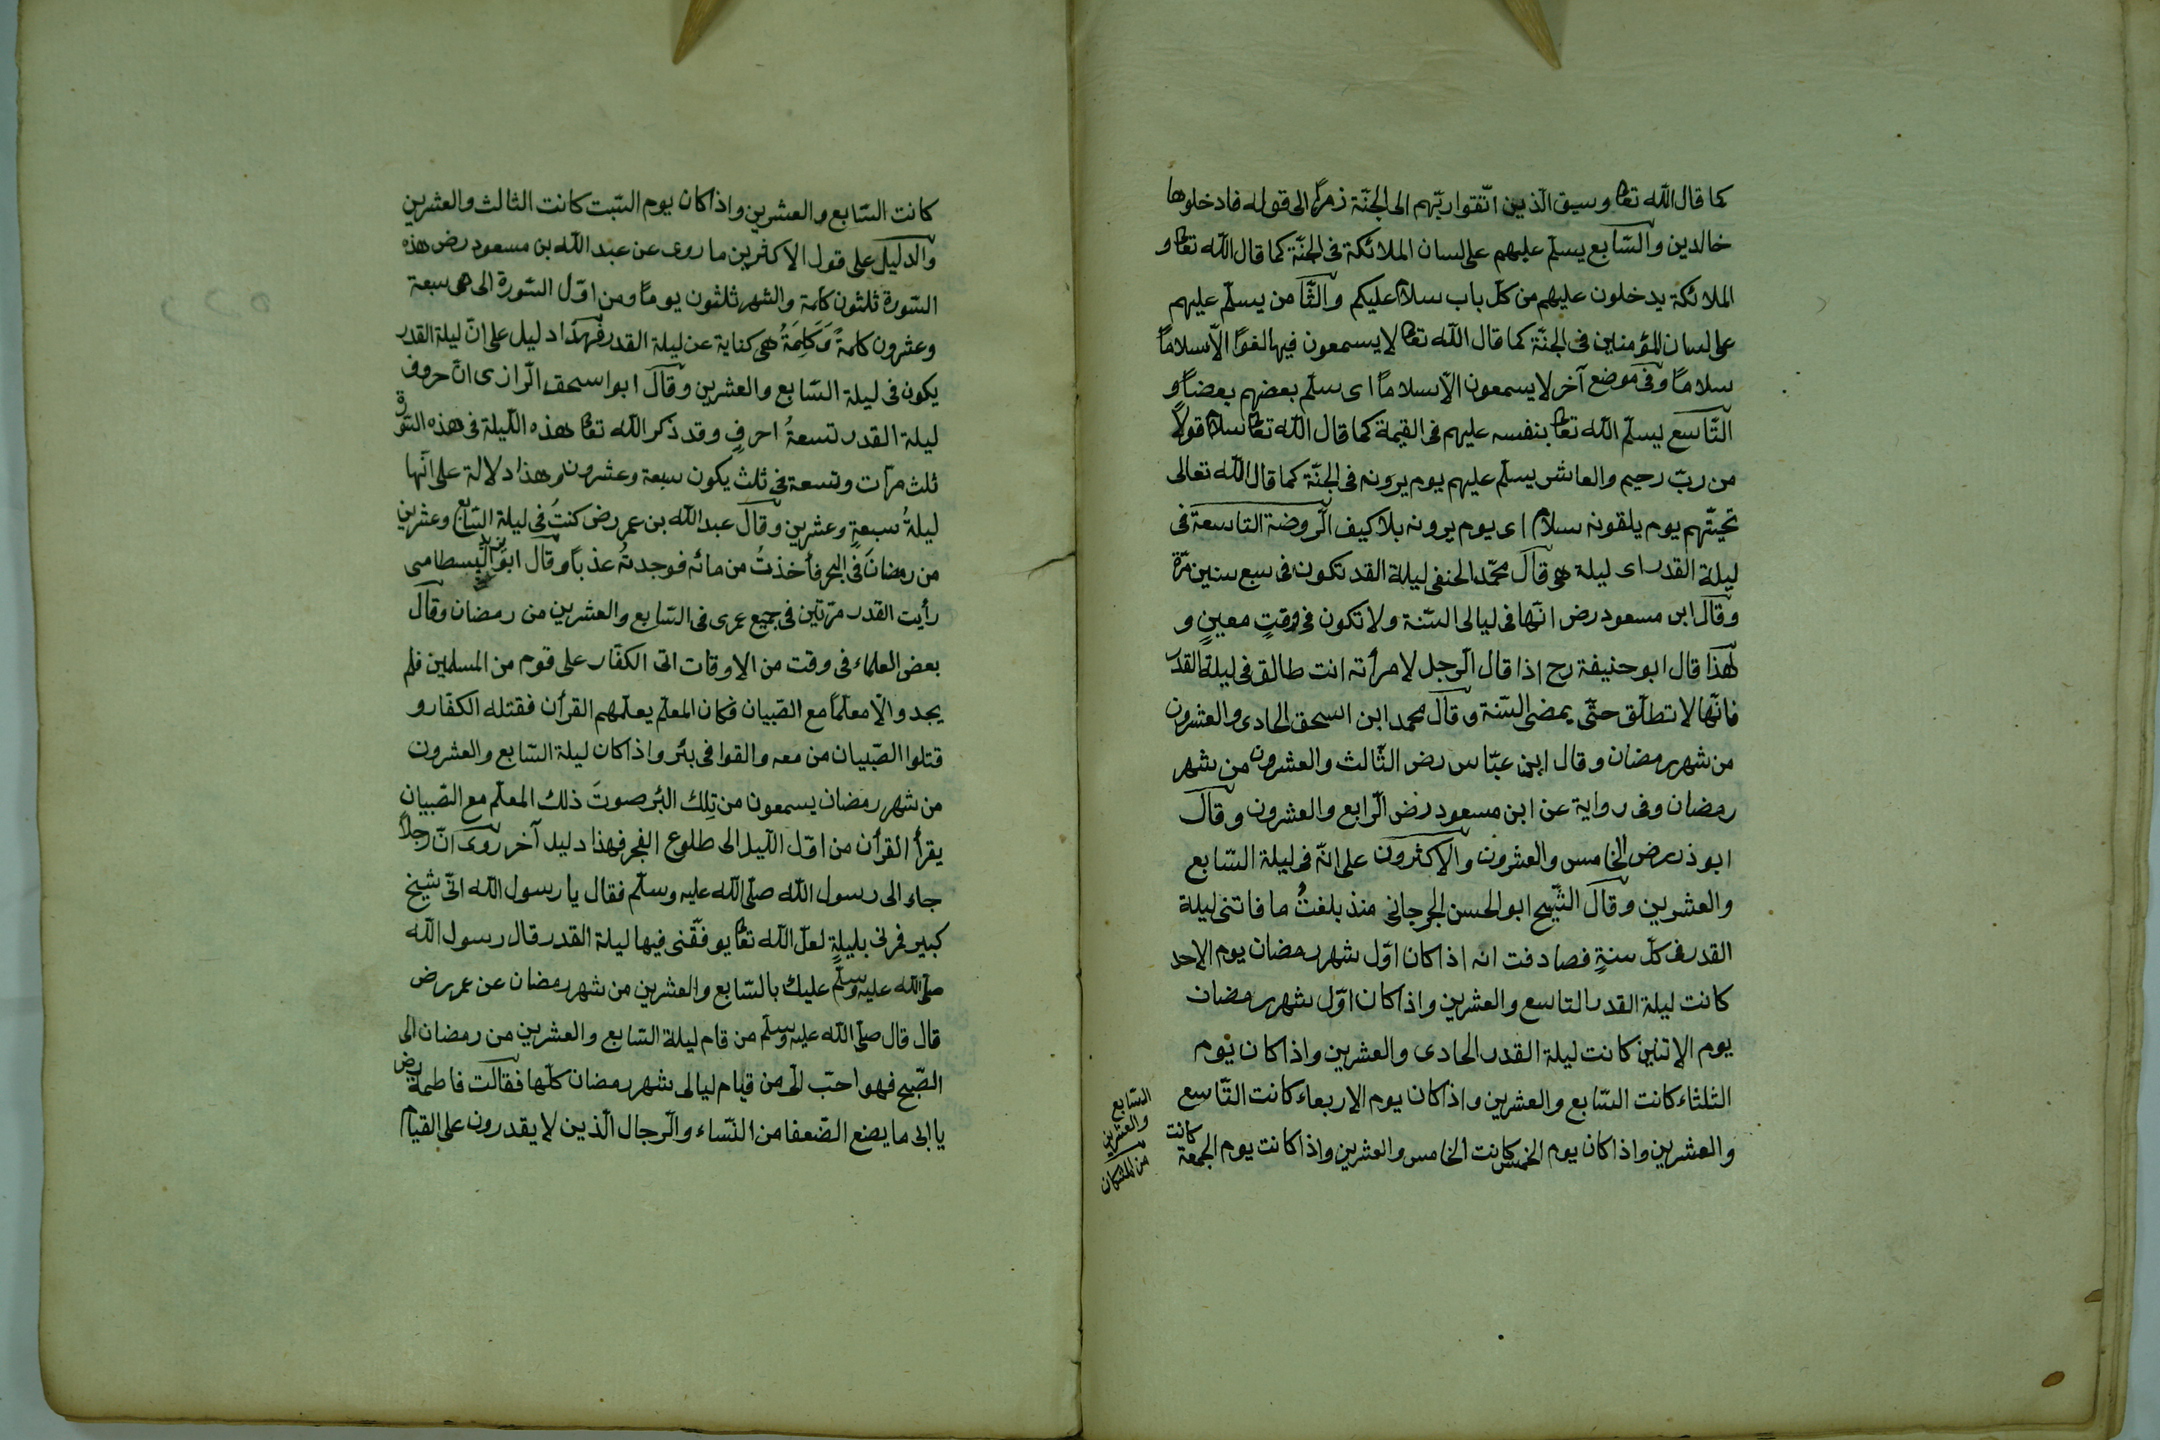 كما قال الله تعا وسيق الذين اتّقوا ربّهم الى الجنّة زمرًا الى قوله فادخلوها
خالدين والسّابع يسلّم عليهم على لسان الملائكة فى الجنّة كما قال الله تعا و
الملائكة يدخلون عليهم من كلّ باب سلام عليكم والثّامن يسلّم عليهم
على لسان المؤمنين فى الجنّة كما قال الله تعا لا يسمعون فيها لغوًا الّا سلامًا
سلامًا وفى موضع آخر لا يسمعون الّا سلامًا اى سلّم بعضهم بعضًا و
التّاسع يسلّم الله تعا بنفسه عليهم فى القيمة كما قال الله تعا سلام قولًا
من ربّ رحيم والعاشر يسلّم عليهم يوم يرونه فى الجنّة كما قال الله تعالى
تحيّتهم يوم يلقونه سلام اى يوم يرونه بلا كيف الّروضة التاسعة فى
ليلة القدر اى ليلة هى قال محمّد الحنفى ليلة القدر تكون فى سبع سنين مرّة
وقال ابن مسعود رض انّها فى ليالى السّنة ولا تكون فى وقتٍ معينٍ و
لهذا قال ابو حنيفة رح اذا قال الّرجل لامرأته انت طالق فى ليلة القدر
فانّها لا تطلّق حتّى يمضى السّنة وقال محمد ابن اسحق الحادى والعشرون
من شهر رمضان وقال ابن عبّاس رض الثّالث والعشرون من شهر
رمضان وفى رواية عن ابن مسعود رض الّرابع والعشرون وقال
ابو ذر رض الخامس والعشرون والاكثرون على انّه فى ليلة السّابع
والعشرين وقال الشّيخ ابو الحسن الجرجانى منذ بلغتُ ما فاتنى ليلة
القدر فى كلّ سنةٍ فصادفت انه اذا كان اوّل شهر رمضان يوم الاحد
كانت ليلة القدر التاسع والعشرين واذا كان اوّل شهر رمضان
يوم الاثنين كانت ليلة القدر الحادى والعشرين واذا كان يوم
الثلثاء كانت السّابع والعشرين واذا كان يوم الاربعاء كانت التّاسع
والعشرين واذا كان يوم الخميس كانت الخامس والعشرين واذا كانت يوم الجمعة كانت
السّابع
والعشرين
كانت السّابع والعشرين واذا كان يوم السّبت كانت الثالث والعشرين
والدليل على قول الاكثرين ما روى عن عبد الله بن مسعود رض هذه
السّورة ثلثون كلمة والشهر ثلثون يومًا ومن اوّل السّورة الى هى سبعة
وعشرون كلمةً وَكَلِمَةُ هى كناية عن ليلة القدر فهذا دليل على انّ ليلة القدر
يكون فى ليلة السّابع والعشرين وقال ابو اسحق الّرازى انّ حروف
ليلة القدر تسعةُ احرفٍ وقد ذكر الله تعا هذه اللّيلة فى هذه السّورة
ثلث مرّات وتسعة فى ثلث يكون سبعة وعشرون وهذا دلالة على انّها
ليلةُ سبعةٍ وعشرين وقال عبد الله بن عمر رض كنتُ فى ليلة السّابع وعشرين
من رمضانَ فى البحر فأخذتُ من مائه فوجدتُه عذبًا وقال ابو اليزيد البسطامى
رأيت القدر مرّتين فى جميع عمرى فى السّابع والعشرين من رمضان وقال
بعض العلماء فى وقت من الاوقات اتى الكفّار على قوم من المسلمين فلم
يجدوا الّا معلّمًا مع الصّبيان فكان المعلّم يعلّمهم القرأن فقتله الكفّار و
قتلوا الصّبيان من معه والقوا فى بئر واذا كان ليلة السّابع والعشرون
من شهر رمضان يسمعون من تِلك البئر صوتَ ذلك المعلّم مع الصّبيان
يقرأ القرأن من اوّل اللّيل الى طلوع الفجر فهذا دليل آخر روى انّ رجلًا
جاء الى رسول الله صلّى الله عليه وسلّم فقال يا رسول الله انّى شيخ
كبير فمرنى بليلةٍ لعلّ الله تعا يوفّقنى فيها ليلة القدر قال رسول الله
صلّى الله عليه وسلّم عليك بالسّابع والعشرين من شهر رمضان عن عمر رض
قال قال صلّى الله عليه وسلّم من قام ليلة السّابع والعشرين من رمضان الى
الصّبح فهو احبّ الّى من قيام ليالى شهر رمضان كلّها فقالت فاطمة رض
يا ابى ما يصنع الضّعفا من النّساء والّرجال الّذين لا يقدرون على القيام